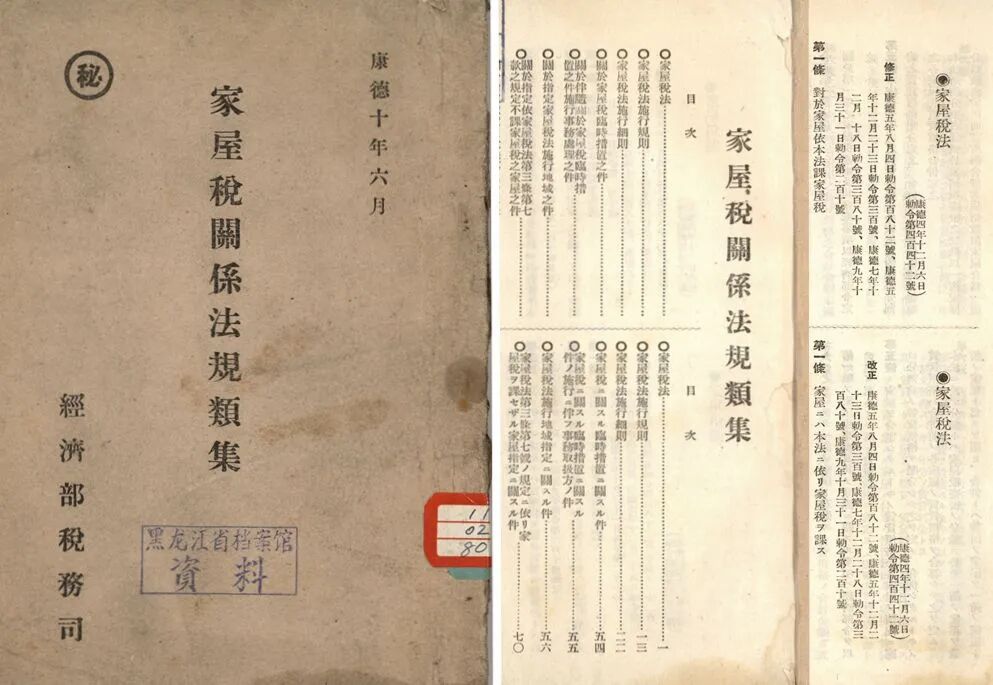 康德十年六月
秘
家屋稅關係法規類集
經濟部稅務司
黑龙江省档案馆
資料
11
02
80
家屋稅關係法規類集
目次
家屋稅法
家屋稅法施行規則
家屋稅法施行細則
關於家屋稅臨時措置之件
關於伴隨關於家屋稅臨時措
置之件施行事務處理之件
關於指定家屋稅法施行地域之件
關於指定依家屋稅法第三條第七
款之規定不課家屋稅之家屋之件
目次
家屋稅法 一
家屋稅法施行規則 一三
家屋稅法施行細則 二二
家屋稅ニ關スル臨時措置ニ關スル件 五四
家屋稅ニ關スル臨時措置ニ關スル
件ノ施行ニ伴フ事務取扱方ノ件 五五
家屋稅法施行地域指定ニ關スル件 五六
家屋稅法第三條第七號ノ規定ニ依リ家
屋稅ヲ課セザル家屋指定ニ關スル件 七〇
◉家屋稅法
(康德四年十二月六日
勅令第四百四十二號)
修正 康德五年八月四日勅令第百八十二號、康德五
年十二月二十三日勅令第三百號、康德七年十
二月二十八日勅令第三百八十號、康德九年十
月三十一日勅令第二百十號
第一條 對於家屋依本法課家屋稅
◉家屋稅法
(康德四年十二月六日
勅令第四百四十二號)
改正 康德五年八月四日勅令第百八十二號、康德五年十二月二
十三日勅令第三百號、康德七年十二月二十八日勅令第三
百八十號、康德九年十月三十一日勅令第二百十號
第一條 家屋ニハ本法ニ依リ家屋稅ヲ課ス